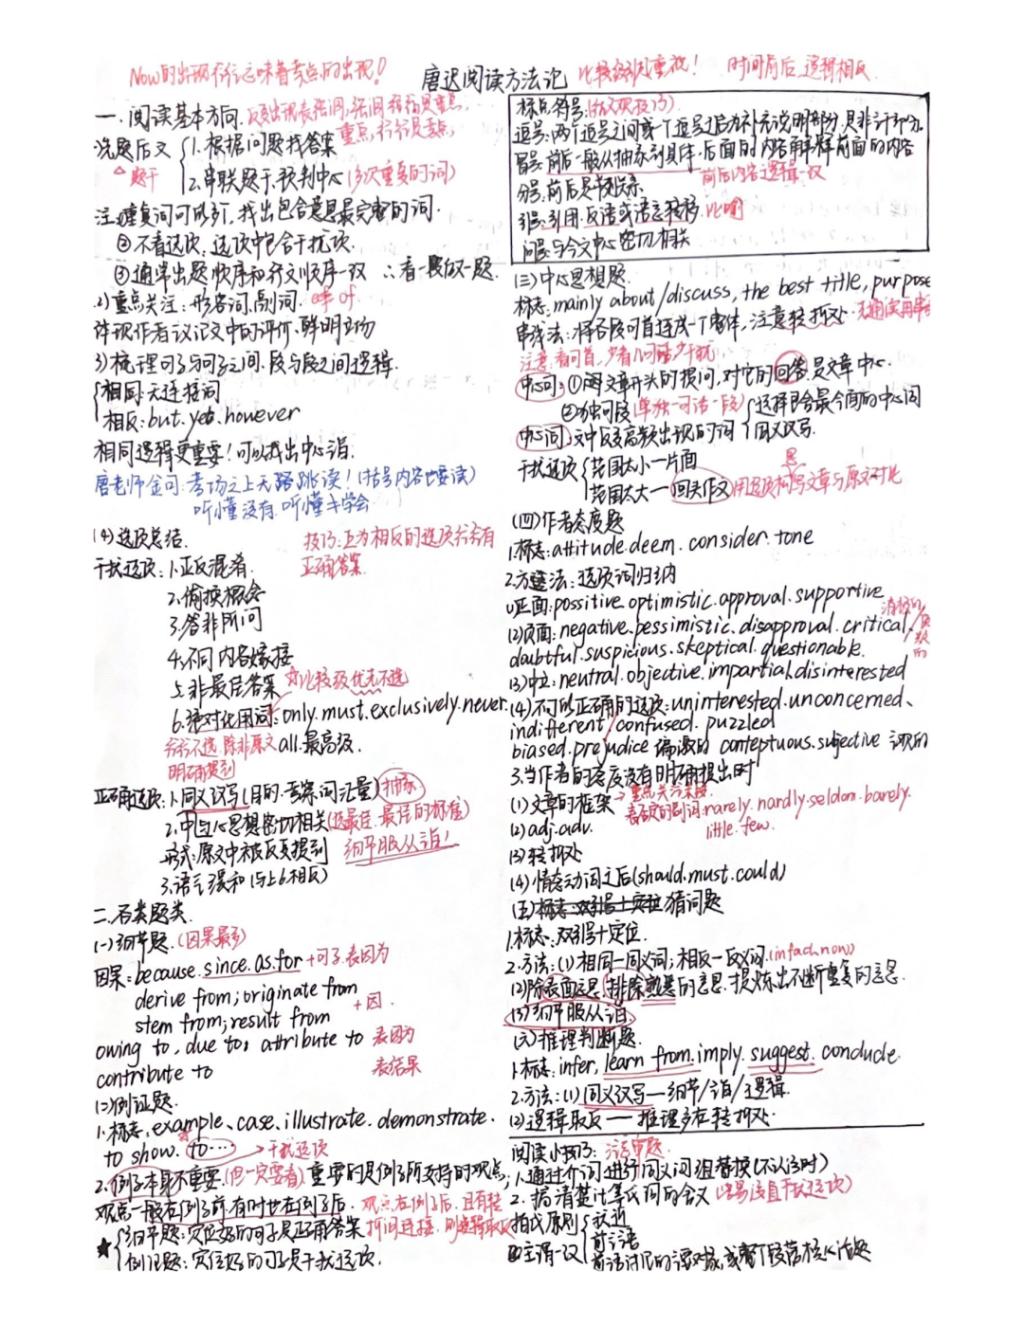 Now的出现往往意味着考点的出现!
唐迟阅读方法论
比较级引起重视!
时间前后,逻辑相反
一、阅读基本方向
重点,往往是考点
先题后文 1.根据问题找答案
题干 2.串联题干,预判中心(多次重复的词)
注:重复词可以划,找出包含意思最完整的词.
②不看选项,选项中包含干扰项
③通常出题顺序和行文顺序一致 ∴看一段做一题.
2)重点关注:形容词.副词.
体现作者议论文中的评价,鲜明立场
3)梳理句子与句子之间.段与段之间逻辑.
相同:无连接词
相反:but.yet.however
相同逻辑更重要!可以找出中心语
唐老师金句:考场之上无略跳读!(括号内容也要读)
听懂没有,听懂才学会
(4)选项总结.
技巧:互为相反的选项往往有
正确答案.
干扰选项:1.正反混淆.
2.偷换概念
3.答非所问
4.不同内容嫁接
5.非最佳答案 ☆比较级优先不选
6.绝对化用词:only.must.exclusively.never.
往往不选,除非原文 all.最高级.
明确提到
正确选项:1.同义改写(目的:考察词汇量)抽象
2.中与心思想密切相关(选最佳.最佳的标准)
形式:原文中被反复提到 细节服从主旨!
3.语气缓和(与上6相反)
二.各类题类.
(一)细节题.(因果最多)
因果:because.since.as.for+句子.表因为
derive from;originate from
stem from;result from +因.
owing to.due to;attribute to 表因为
contribute to 表结果
(二)例证题.
1.标志.example、case.illustrate.demonstrate.
to show.to… →干扰选项
2.例子本身不重要.(但一定要看)重要的是例子所支持的观点;
观点一般在例子前,有时也在例子后. 观点在例子后,且有转
折词连接,则逻辑取反
★细节题:定位好的句子是正确答案
例证题:定位好的句子是干扰选项.
标点符号:
逗号:两个逗号之间或一个逗号之后为补充说明部分,具非主干成分.
冒号:前后一般从抽象到具体.后面的内容解释前面的内容
分号:前后是并列关系. 前后内容逻辑一致
引号:引用.反语或语意转移.比喻
问号:与全文中心密切相关
(三)中心思想题.
标志:mainly about/discuss, the best title, purpose
串线法:将各段句首连成一个整体,注意转折处.
中心句:①阅文章开头的提问,对它的回答是文章中心.
②独句段(单独一句话一段) 选择包含最全面的中心词
中心词:文中反复高频出现的词 同义改写.
干扰选项 范围太小—片面
范围太大—回头作文
(四)作者态度题
1.标志:attitude.deem.consider.tone
2.方法:选项词归纳
(1)正面:possitive.optimistic.approval.supportive
(2)负面:negative.pessimistic.disapproval.critical
doubtful.suspicious.skeptical.questionable.
(3)中立:neutral.objective.impartial.disinterested
(4)不可以正确的选项:uninterested.unconcerned、
indifferent confused.puzzled
biased.prejudice 偏激的 conteptuous.subjective 主观的
3.当作者的态度没有明确提出时
(1)文章的框架
(2)adj.adv. 否定的副词:rarely.hardly.seldom.barely.
little.few.
(3)转折处
(4)情态动词之后(should.must.could)
(五)猜词题
1.标志、双引号+定位.
2.方法:(1)相同—同义词;相反—反义词.(in fact.now)
(2)除表面意思,排除熟悉的意思.提炼出不断重复的意思.
(3)细节服从主旨
(六)推理判断题.
1.标志:infer, learn from.imply.suggest.conclude.
2.方法:(1)同义改写—细节/主旨/逻辑.
(2)逻辑取反—推理多在转折处.
阅读小技巧:
1.通过介词进行同义词组替换(不认识时)
2.搞清楚it等代词的含义
指代原则 就近
前主语
④主谓一致